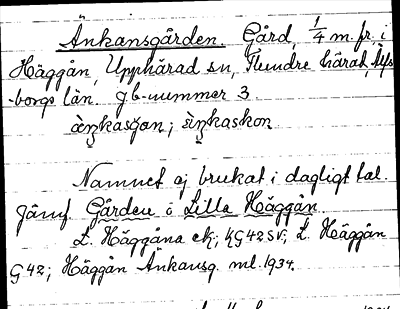 Änkansgården. Gård, 1/4 m. fr. i
Häggån, Upphärad sn, Flundre härad, Älfs-
-borgs län. gb-nummer 3.
Namnet ej brukat i dagligt tal.
Jämf. Gården i Lilla Häggån.
L. Häggåna ek; KG42SV; L. Häggån
G42; Häggån Änkansg. ml. 1934.